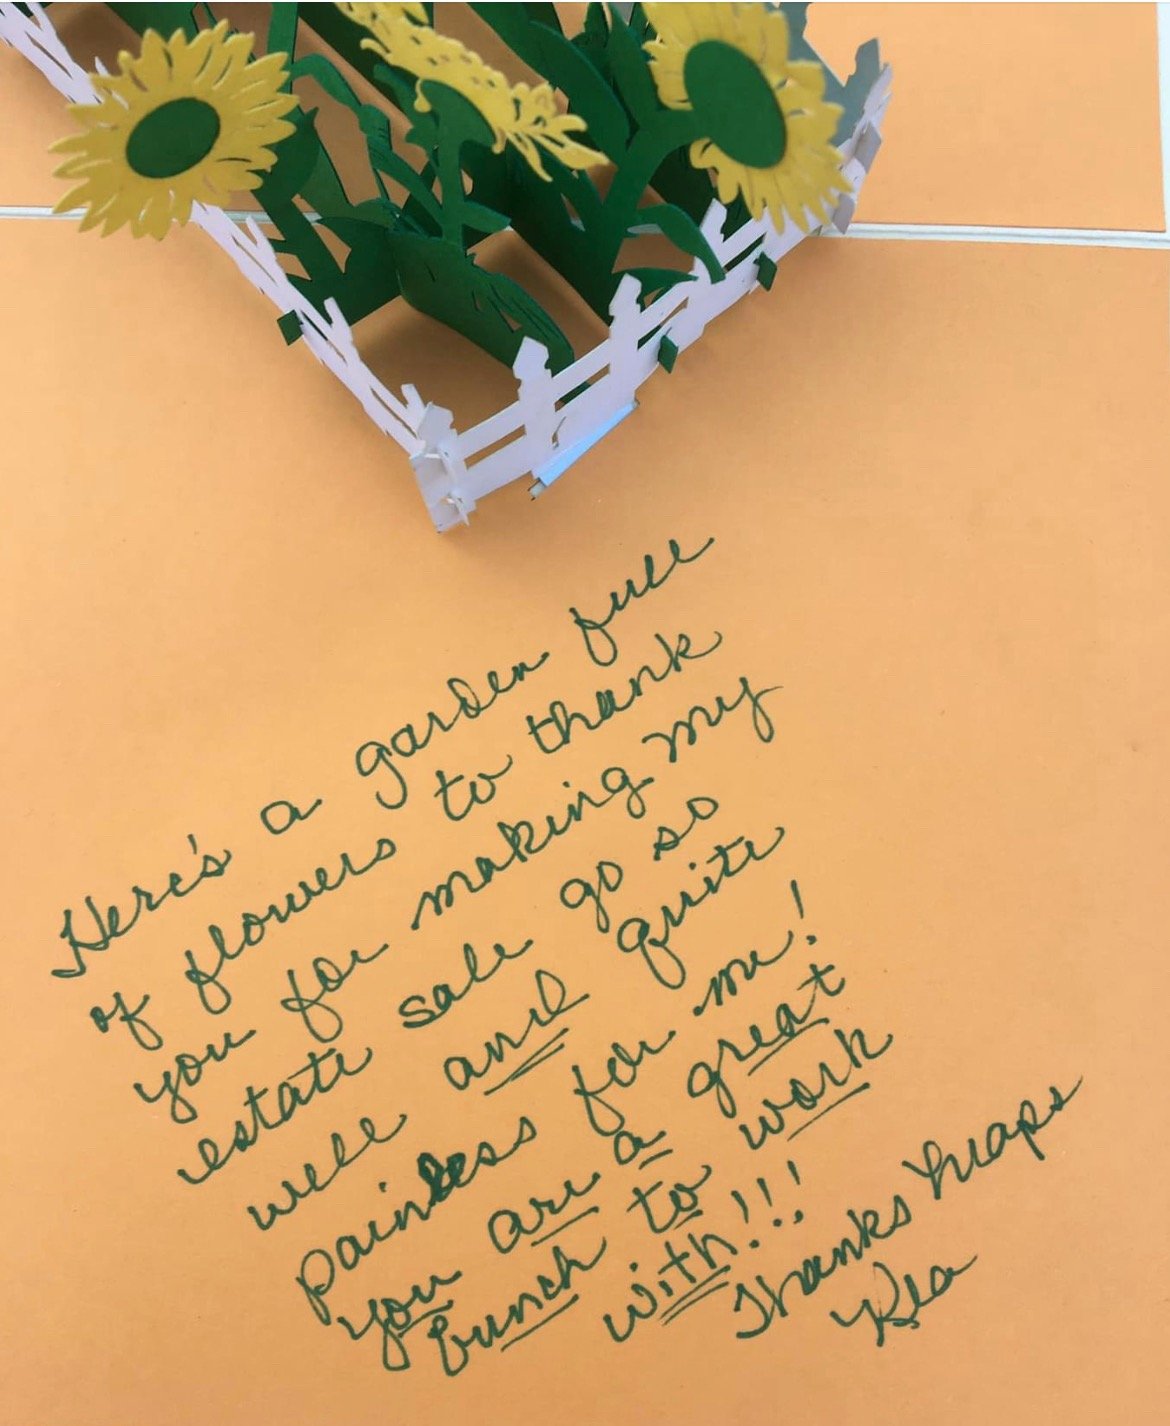 Here's a garden full
of flowers to thank
you for making my
estate sale go so
well and quite
painless for me!
you are a great
bunch to work
with!!!
Thanks heaps